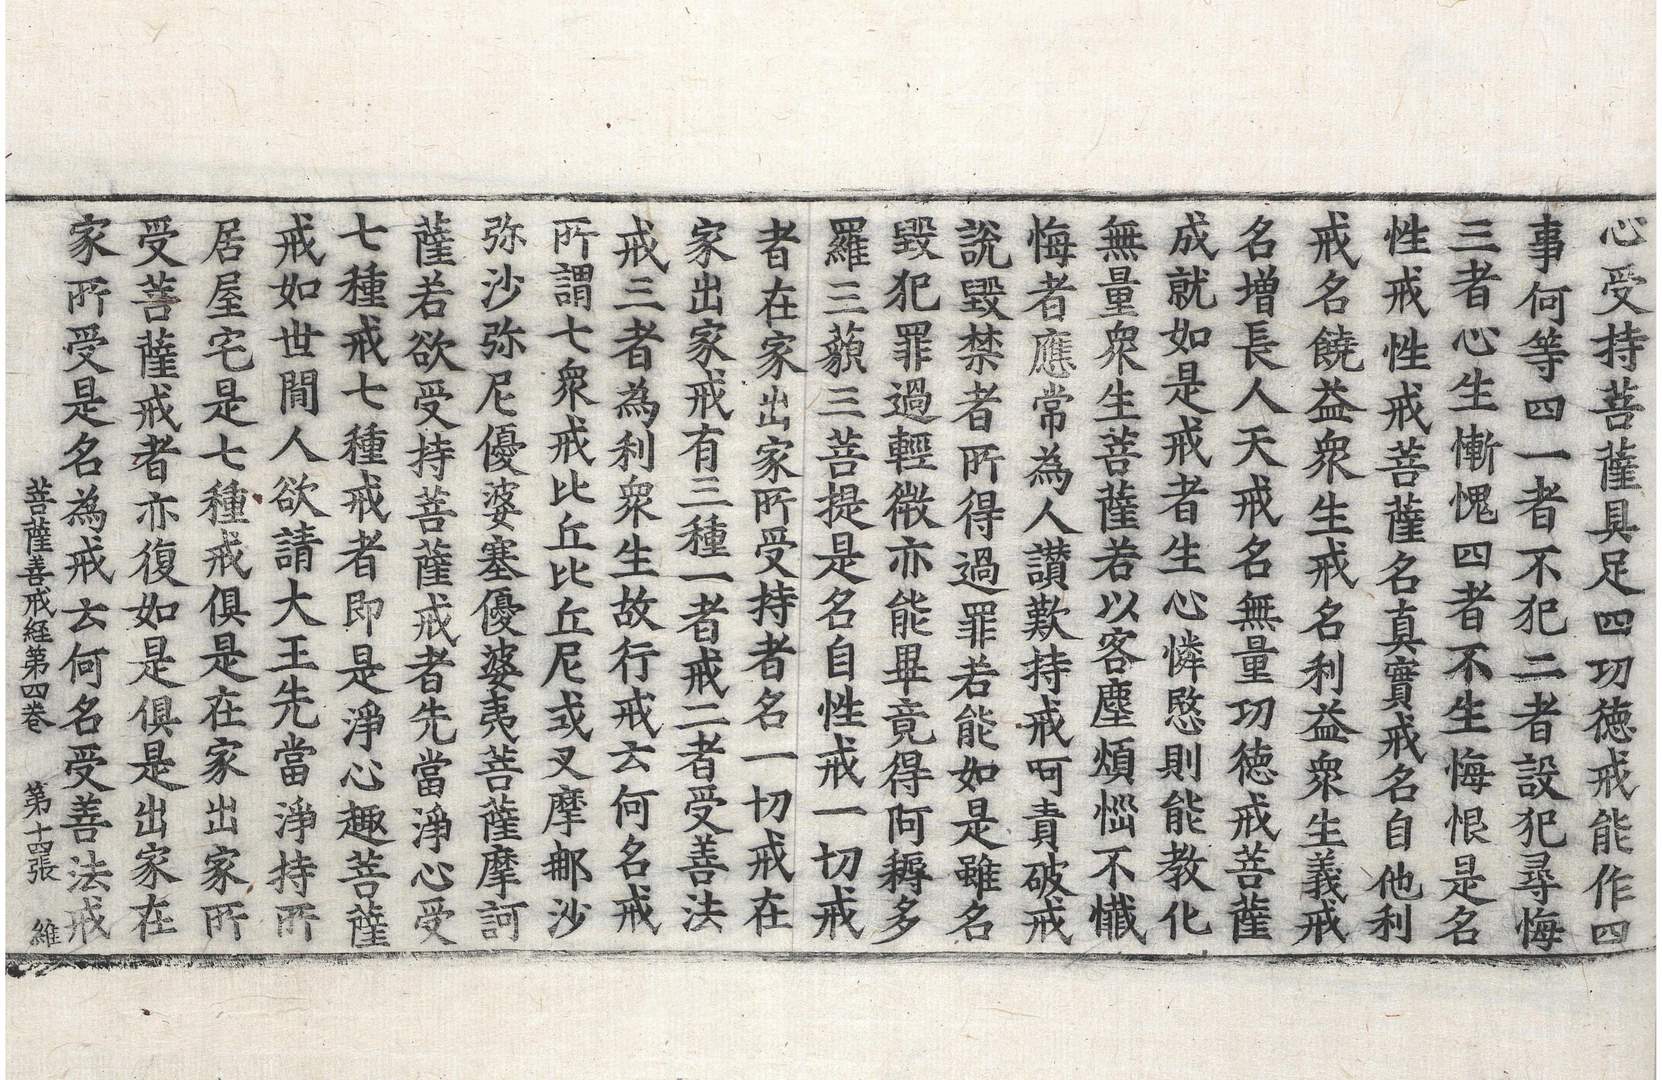 心受持菩薩具足四功徳戒能作四
事何等四一者不犯二者設犯尋悔
三者心生慚愧四者不生悔恨是名
性戒性戒菩薩名真實戒名自他利
戒名饒益衆生戒名利益衆生義戒
名增長人天戒名無量功徳戒菩薩
成就如是戒者生心憐愍則能教化
無量衆生菩薩若以客塵煩惱不懺
悔者應常為人讃歎持戒呵責破戒
說毀禁者所得過罪若能如是雖名
毀犯罪過輕微亦能畢竟得阿耨多
羅三藐三菩提是名自性戒一切戒
者在家出家所受持者名一切戒在
家出家戒有三種一者戒二者受善法
戒三者為利衆生故行戒云何名戒
所謂七衆戒比丘比丘尼式叉摩那沙
弥沙弥尼優婆塞優婆夷菩薩摩訶
薩若欲受持菩薩戒者先當淨心受
七種戒七種戒者即是淨心趣菩薩
戒如世間人欲請大王先當淨持所
居屋宅是七種戒俱是在家出家所
受菩薩戒者亦復如是俱是出家在
家所受是名為戒云何名受善法戒
菩薩善戒経第四卷 第十四張 維